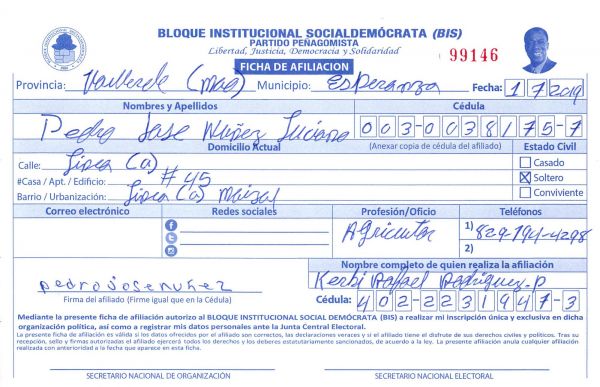 BLOQUE INSTITUCIONAL SOCIALDEMÓCRATA (BIS)
PARTIDO PEÑAGOMISTA
Libertad, Justicia, Democracia y Solidaridad
FICHA DE AFILIACION
99146
Provincia: Valverde (mao) Municipio: Esperanza Fecha: 1/7/2019
Nombres y Apellidos Cédula
Pedro Jose Nuñez Luciano 003-0038175-7
Domicilio Actual (Anexar copia de cédula del afiliado) Estado Civil
Calle: (a) Casado
#Casa / Apt. / Edificio: #45 Soltero
Barrio / Urbanización: (a) Maizal Conviviente
Correo electrónico Redes sociales Profesión/Oficio Teléfonos
Agricultor 1) 829-794-4298
2)
Nombre completo de quien realiza la afiliación
pedro jose nuñez Kerbi Rafael Rodriguez.P
Firma del afiliado (Firme igual que en la Cédula) Cédula: 402-2231947-3
Mediante la presente ficha de afiliación autorizo al BLOQUE INSTITUCIONAL SOCIAL DEMÓCRATA (BIS) a realizar mi inscripción única y exclusiva en dicha
organización política, así como a registrar mis datos personales ante la Junta Central Electoral.
La presente ficha de afiliación es válida si los datos ofrecidos por el afiliado son correctos, las declaraciones veraces y si el afiliado tiene el disfrute de sus derechos civiles y políticos. Tras su
recepción, sello y firmas autorizadas el afiliado ejercerá todos los derechos y los deberes estatutariamente sancionados, de acuerdo a la ley. La presente afiliación anula cualquier afiliación
realizada con anterioridad a la fecha que aparece en esta ficha.
SECRETARIO NACIONAL DE ORGANIZACIÓN SECRETARIO NACIONAL ELECTORAL